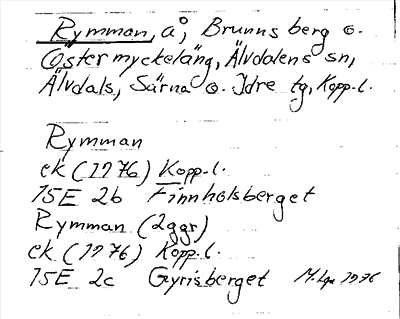 Rymman, å, Brunnsberg o.
Östermyckeläng, Älvdalens sn,
Älvdals, Särna o. Idre tg, Kopp.l.
Rymman
ek (1976) Kopp.l.
15E 2b Finnholsberget
Rymman (2ggr)
ek (1976) Kopp.l.
15E 2c Gyrisberget M.Lgr 1976